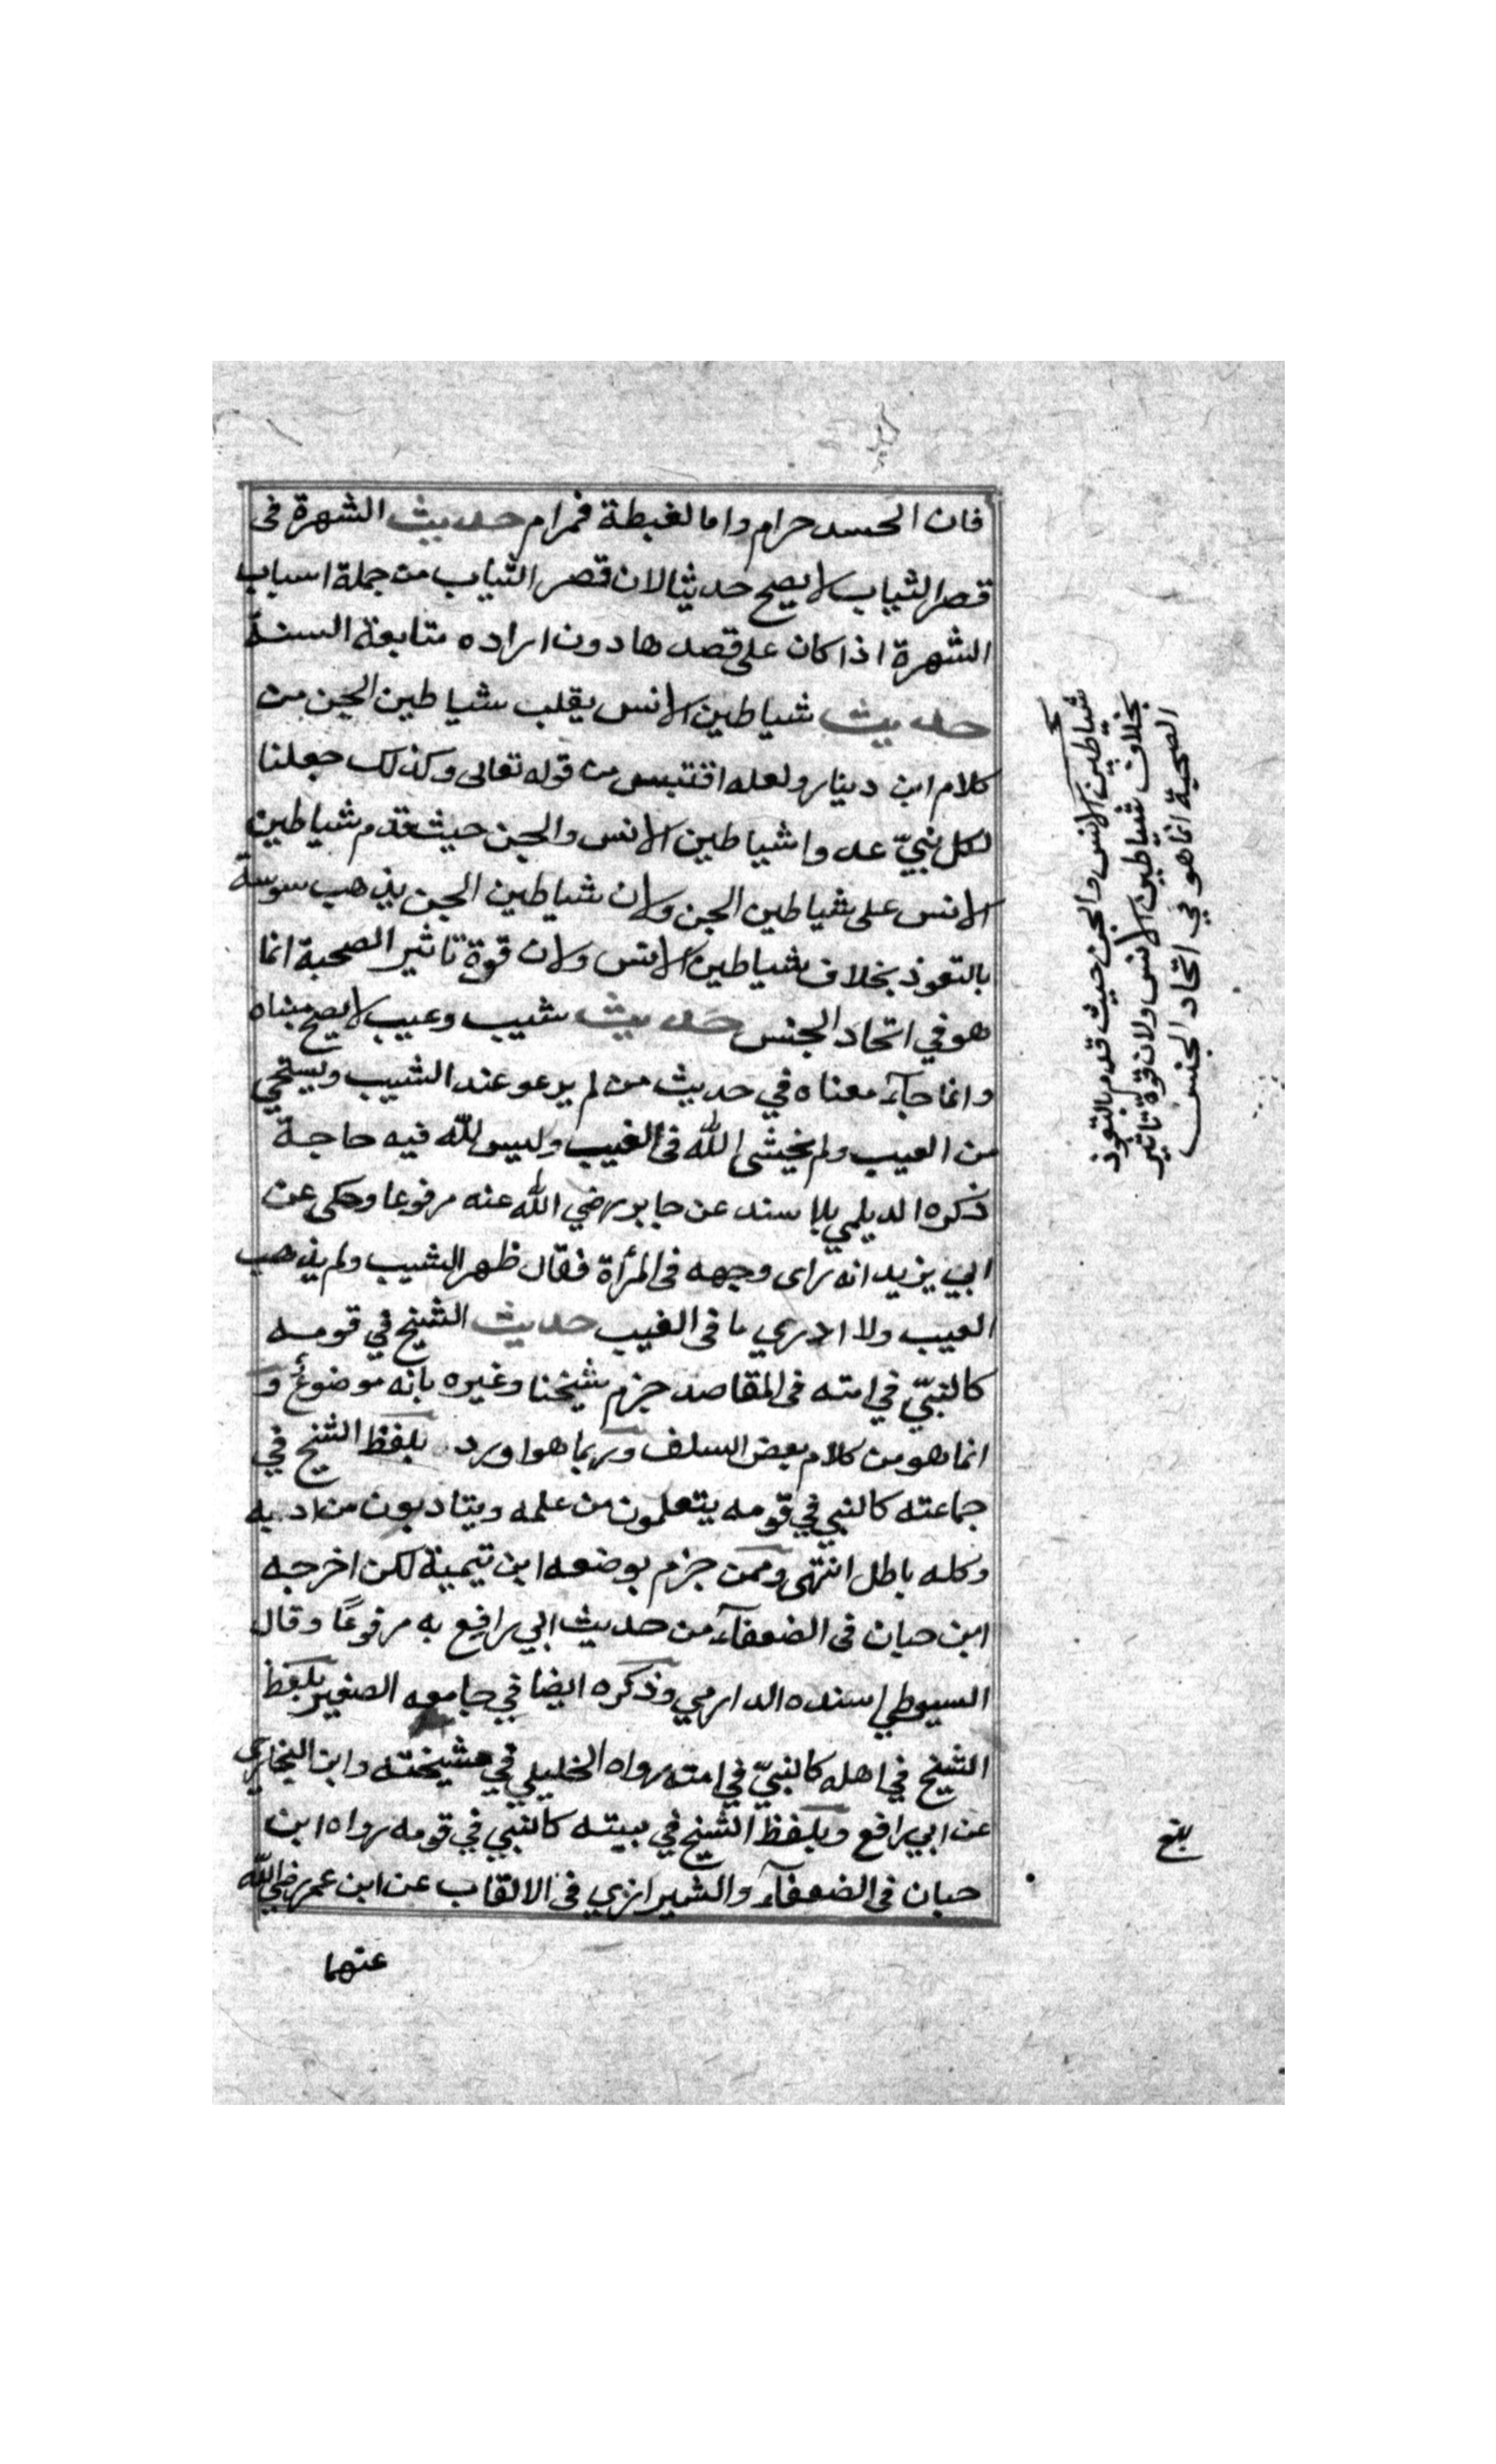 فان الحسد حرام واما الغبطة فمرام حديث الشهرة فى
قصر الثياب لا يصح حديثا لان قصر الثياب من جملة اسباب
الشهرة اذا كان على قصدها دون اراده متابعة السنة
حديث شياطين الانس يقلب شياطين الجن من
كلام ابن دينار ولعله اقتبس من قوله تعالى وكذلك جعلنا
لكل نبيّ عدوا شياطين الانس والجن حيث قدم شياطين
الانس على شياطين الجن ولان شياطين الجن يذهب سوسة
بالتعوذ بخلاف شياطين الانس ولان قوة تاثير الصحبة انما
هو في اتحاد الجنس حديث شيب وعيب لا يصح مبناه
وانما جآء معناه في حديث من لم يرعو عند الشيب ويستحي
من العيب ولم يخشى الله فى الغيب وليس لله فيه حاجة
ذكره الديلمي بلا سند عن جابر رضي الله عنه مرفوعا وحكى عن
ابي يزيد انه راى وجهه فى المرأة فقال ظهر الشيب ولم يذهب
العيب ولا ادري ما فى الغيب حديث الشيخ في قومه
كالنبيّ في امته فى المقاصد جزم شيخنا وغيره بانه موضوع و
انما هو من كلام بعض السلف وربما هو اورد بلفظ الشيخ في
جماعته كالنبي في قومه يتعلمون من علمه ويتادبون من ادبه
وكله باطل انتهى وممن جزم بوضعه ابن تيمية لكن اخرجه
ابن حبان فى الضعفآء من حديث ابي رافع به مرفوعًا وقال
السيوطي اسنده الدارمي وذكره ايضا في جامعه الصغير بلفظ
الشيخ في اهله كالنبيّ في امته رواه الخليلي في مشيخته وابن النجاري
عن ابي رافع وبلفظ الشيخ في بيته كالنبي في قومه رواه ابن
حبان فى الضعفآء والشيرازي فى الالقاب عن ابن عمر رضي الله
عنهما
شياطين الانس والجن حيث قدم بالتعوذ
بخلاف شياطين الانس ولان قوة تاثير
الصحبة انما هو في اتحاد الجنس
بلغ